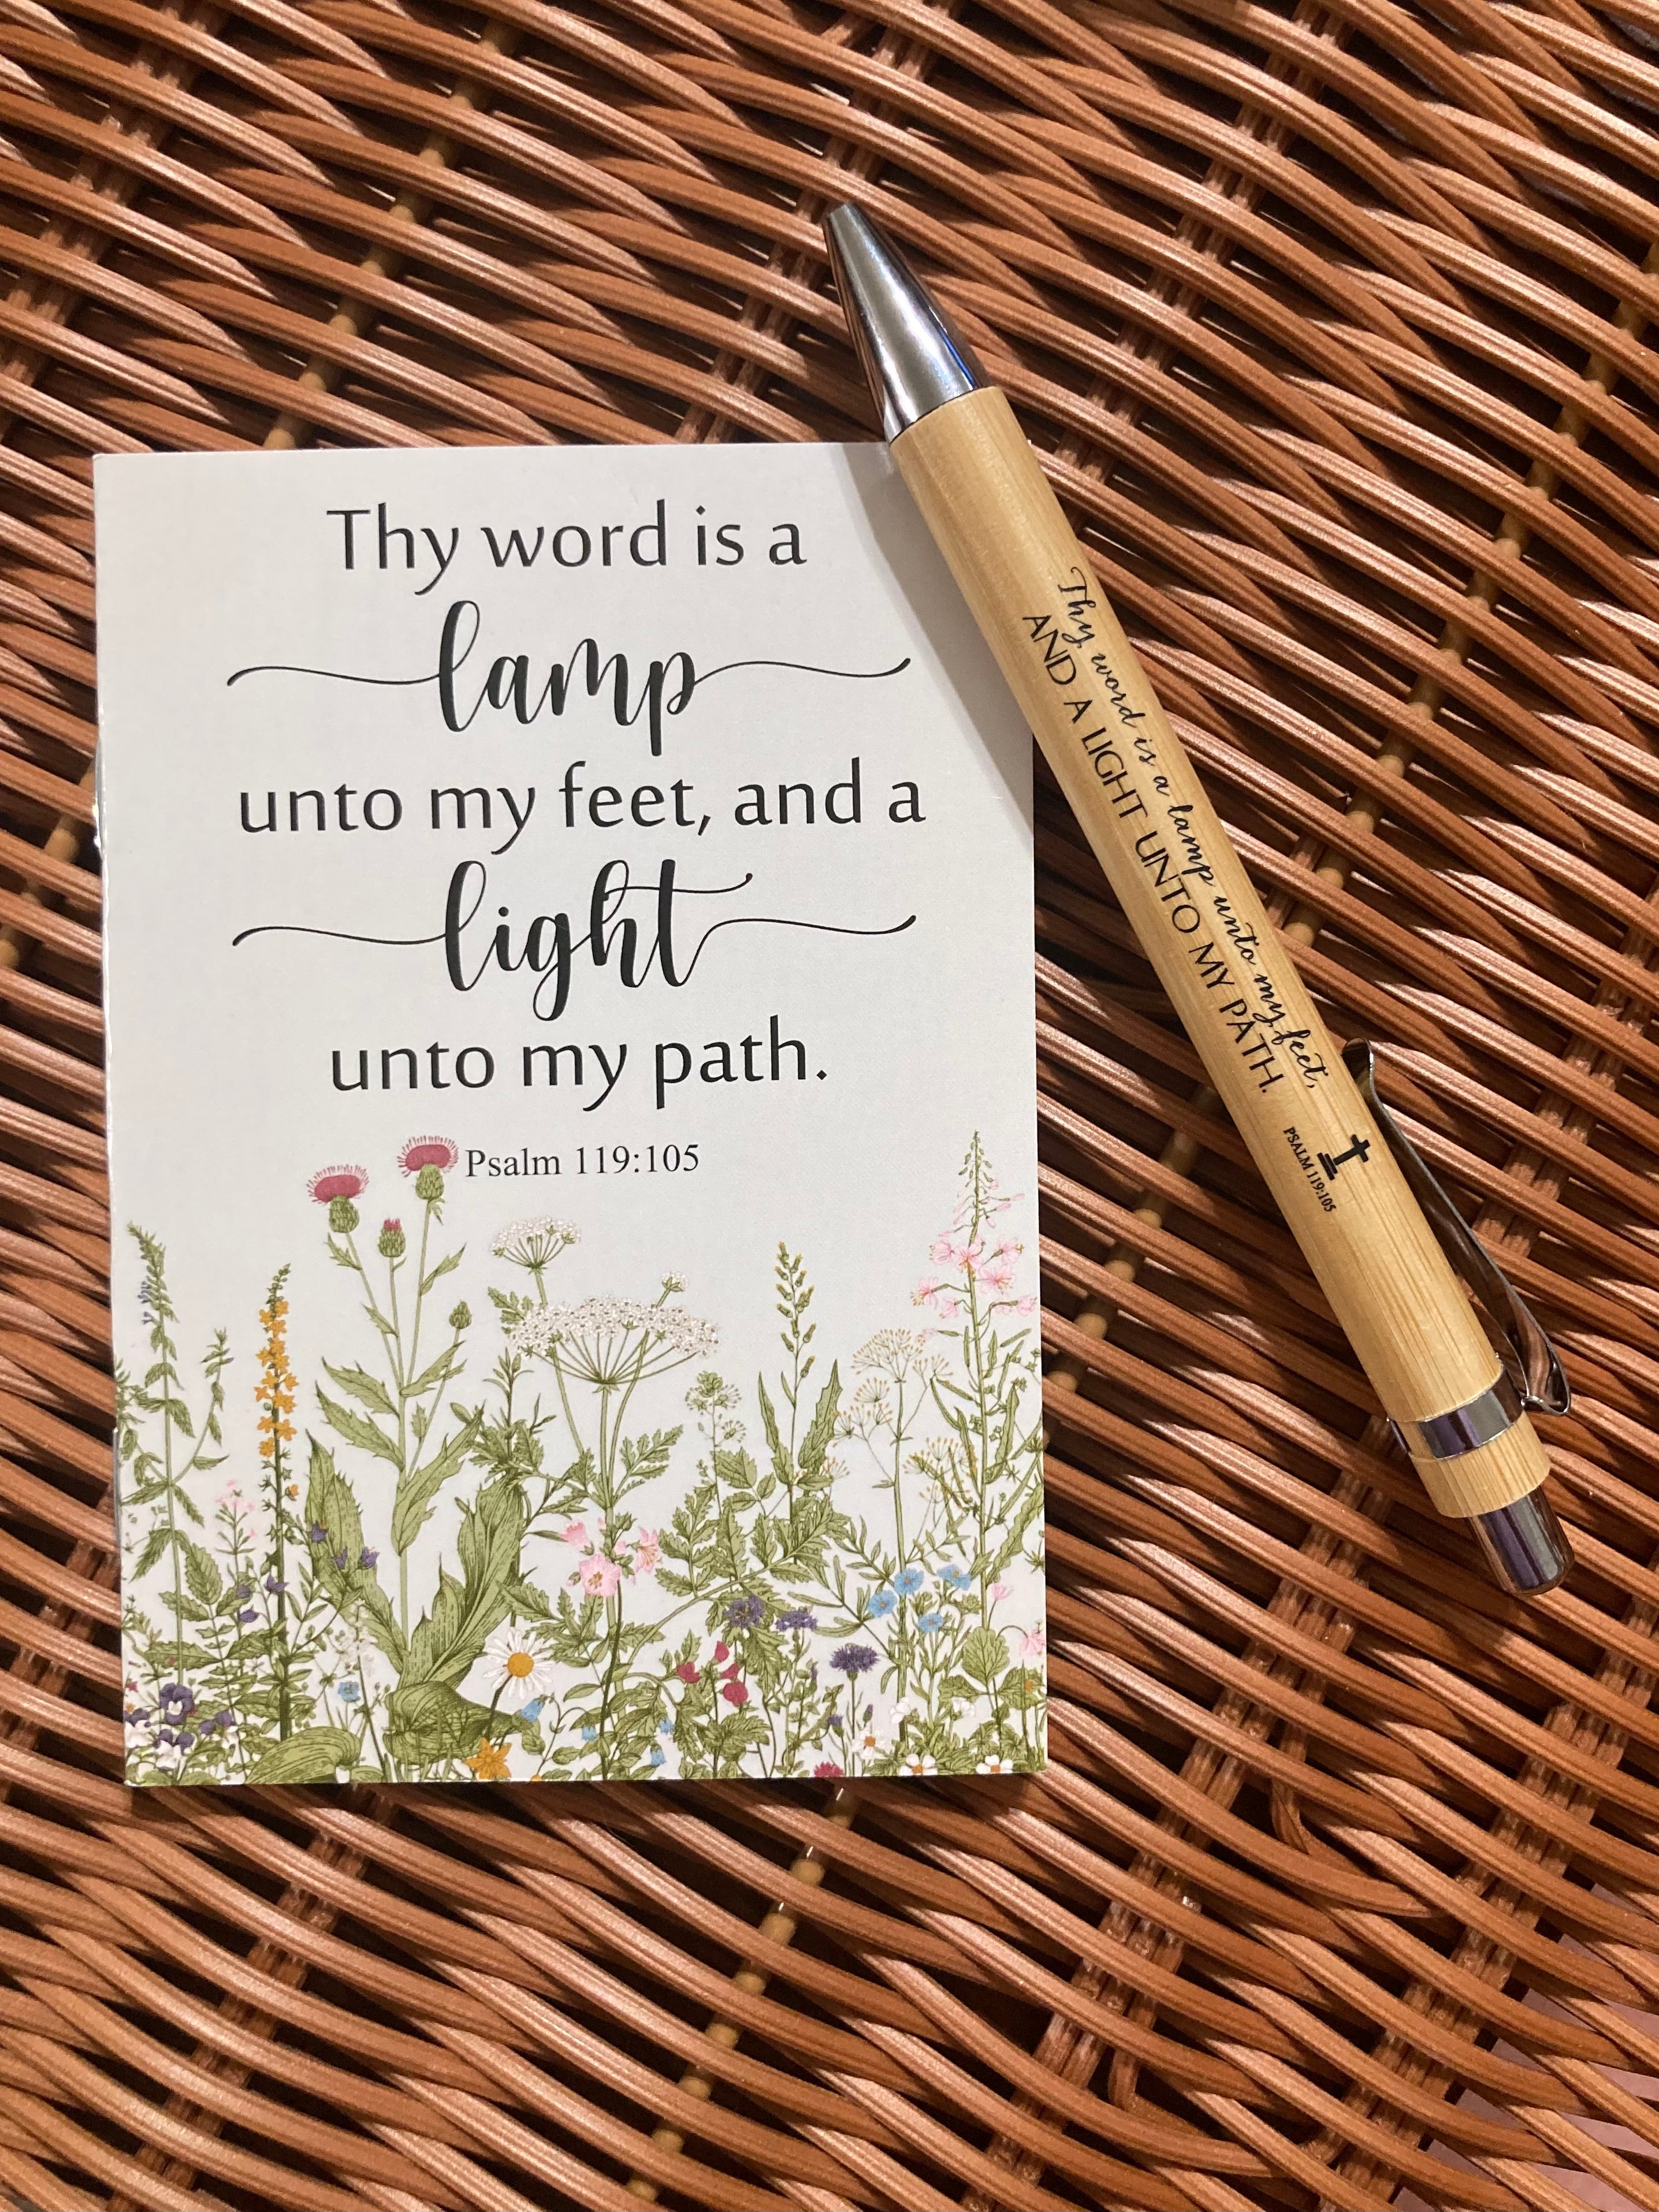 Thy word is a
lamp
unto my feet, and a
light
unto my path.
Psalm 119:105
Thy word is a lamp unto my feet,
AND A LIGHT UNTO MY PATH.
PSALM 119:105